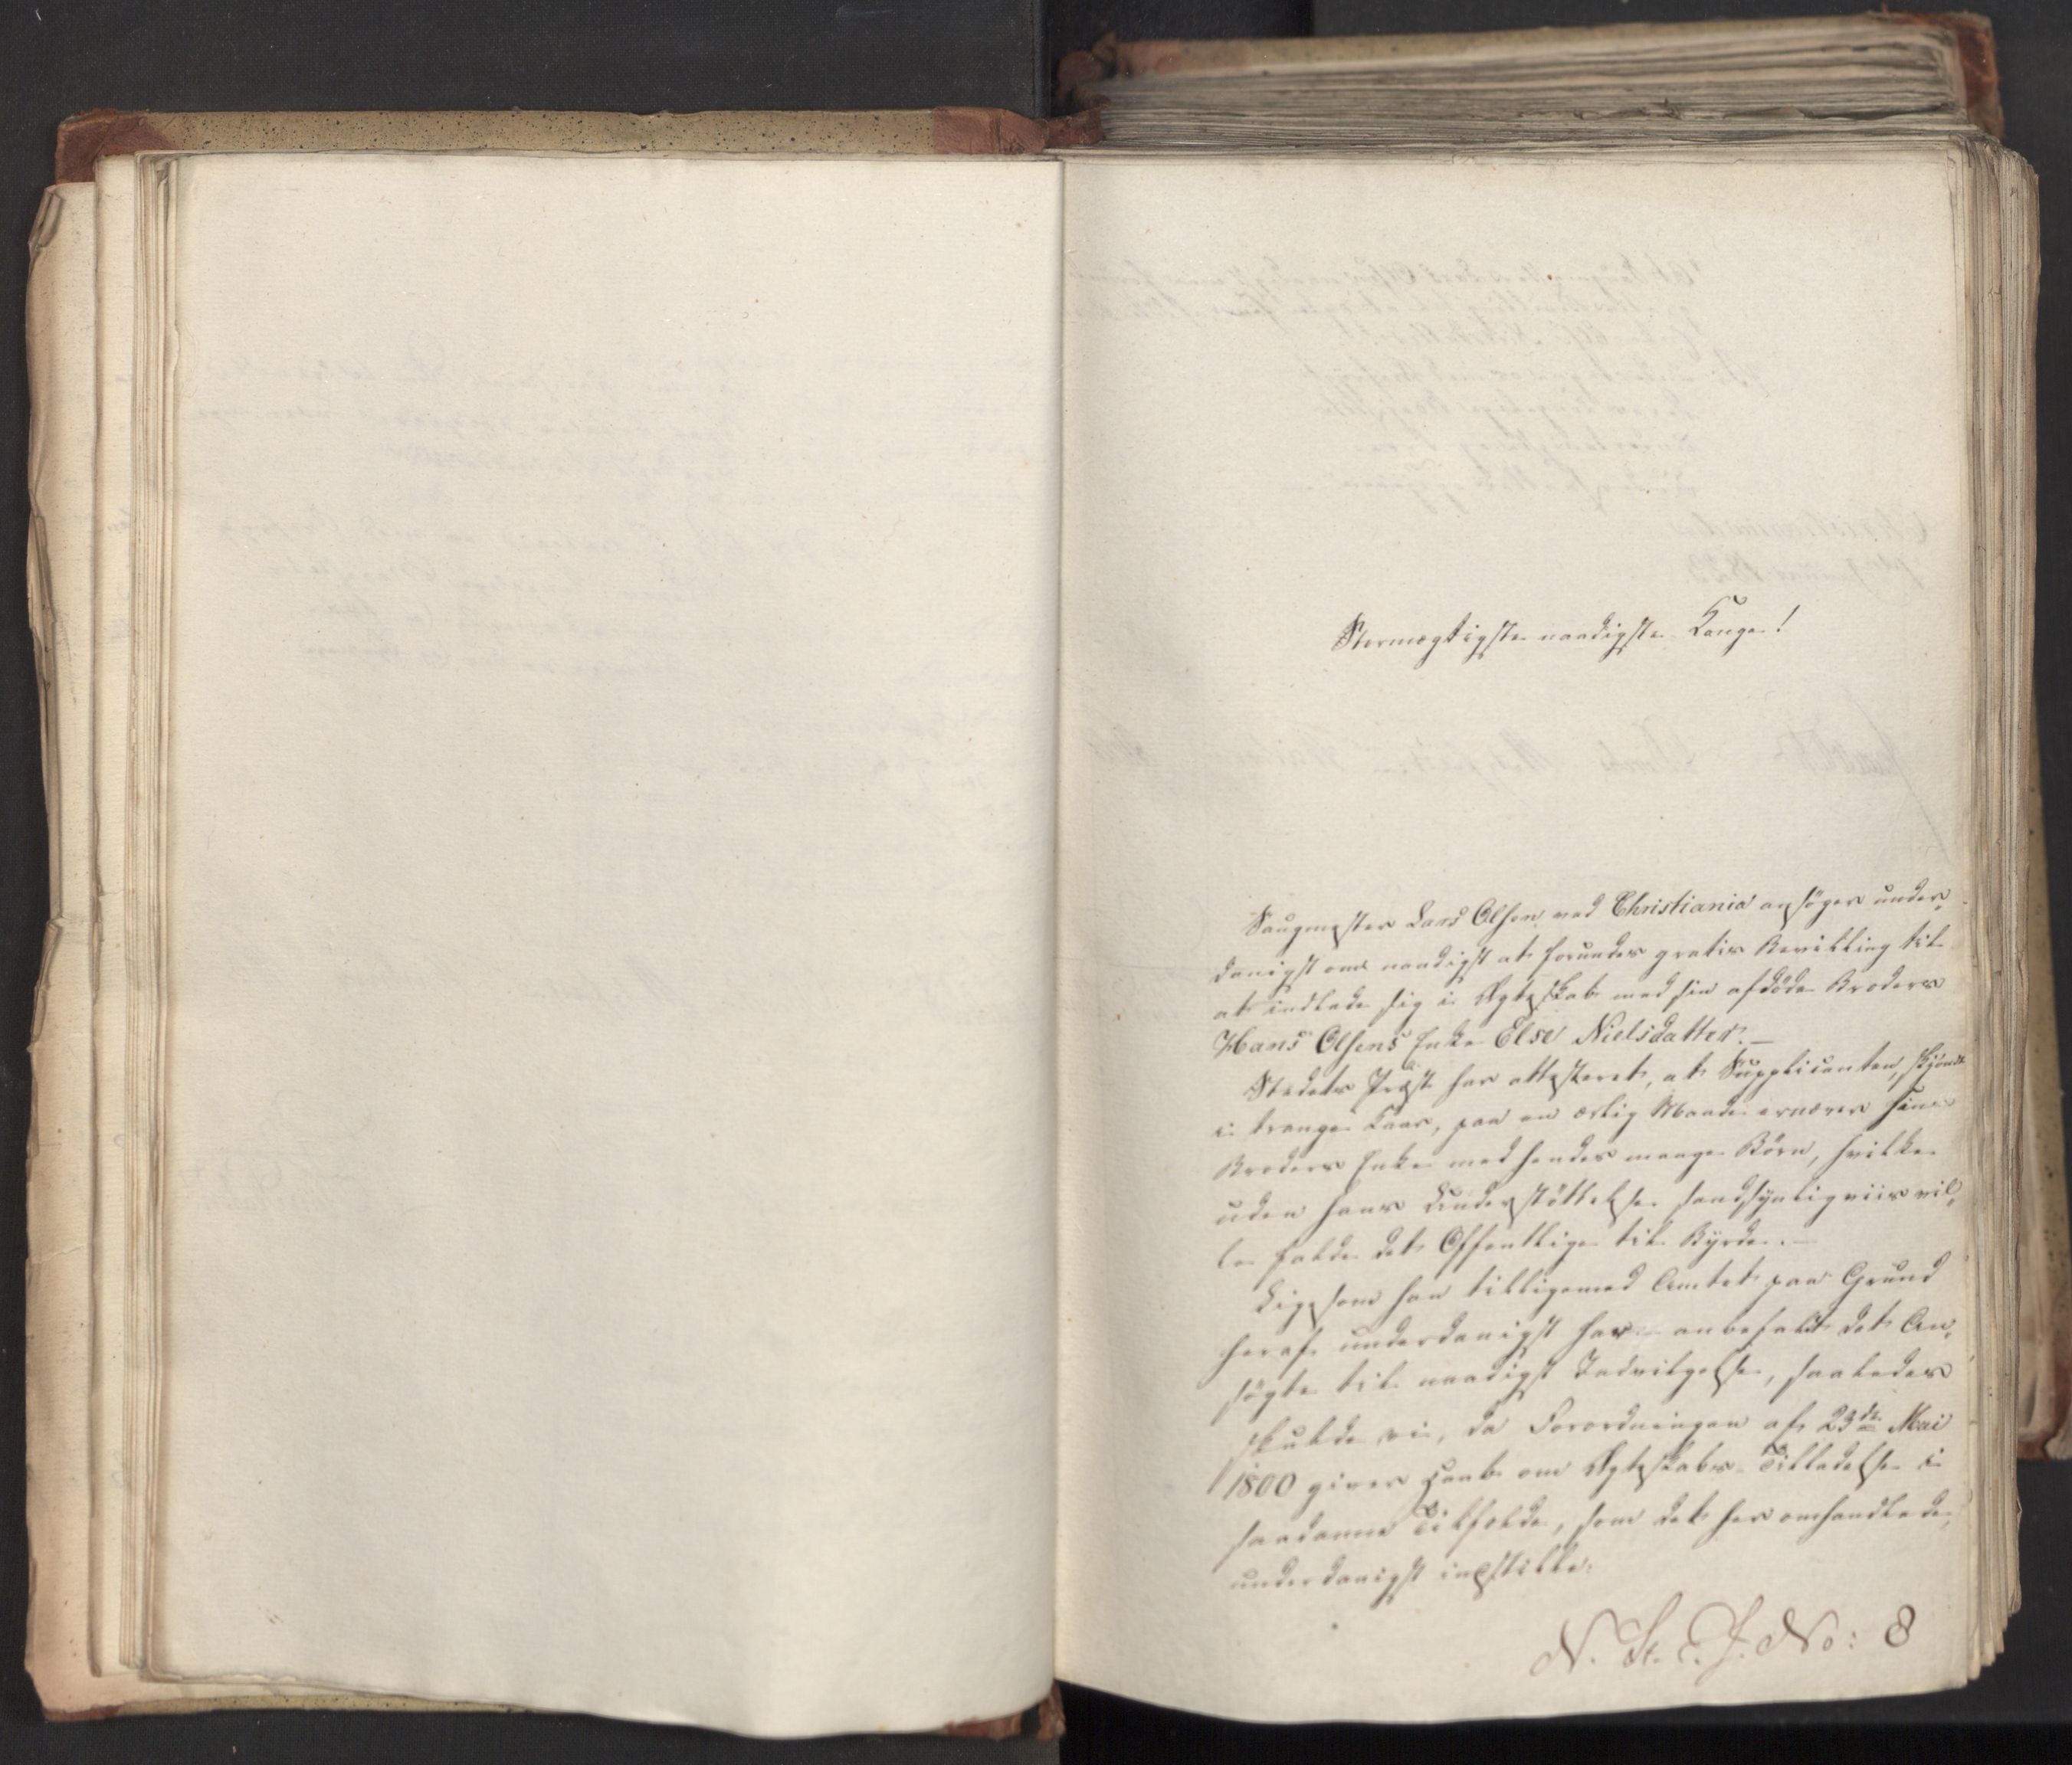 Stormægtigste naadigste Konge!
Saugmester Lars Olsen ved Christiania ansøger under-
danigst om naadigst at forundes gratis Bevilling til
at indlade sig i Ægteskab med sin afdøde Broders
Hans Olsens Enke Else Nielsdatter.-
Stedets Præst har attesteret, at Supplicanten, skjøndt
i trange Kaar, paa en ærlig Maade ernærer sin
Broders Enke med hendes mange Børn, hvilke
uden hans Understøttelse sandsynligviis vil-
le falde det Offentlige til Byrde.-
Ligesom han tilligemed Amtet paa Grund
heraf underdanigst har anbefalet det An-
søgte til naadigst Indvilgelse, saaledes
skulde vi, da Forordningen af 23de Mai
1800 giver Haab om Ægteskabs-Tilladelse i
saadanne Tilfælde, som det her omhandlede,
underdanigst indstille:
N. St. C. J. No: 8